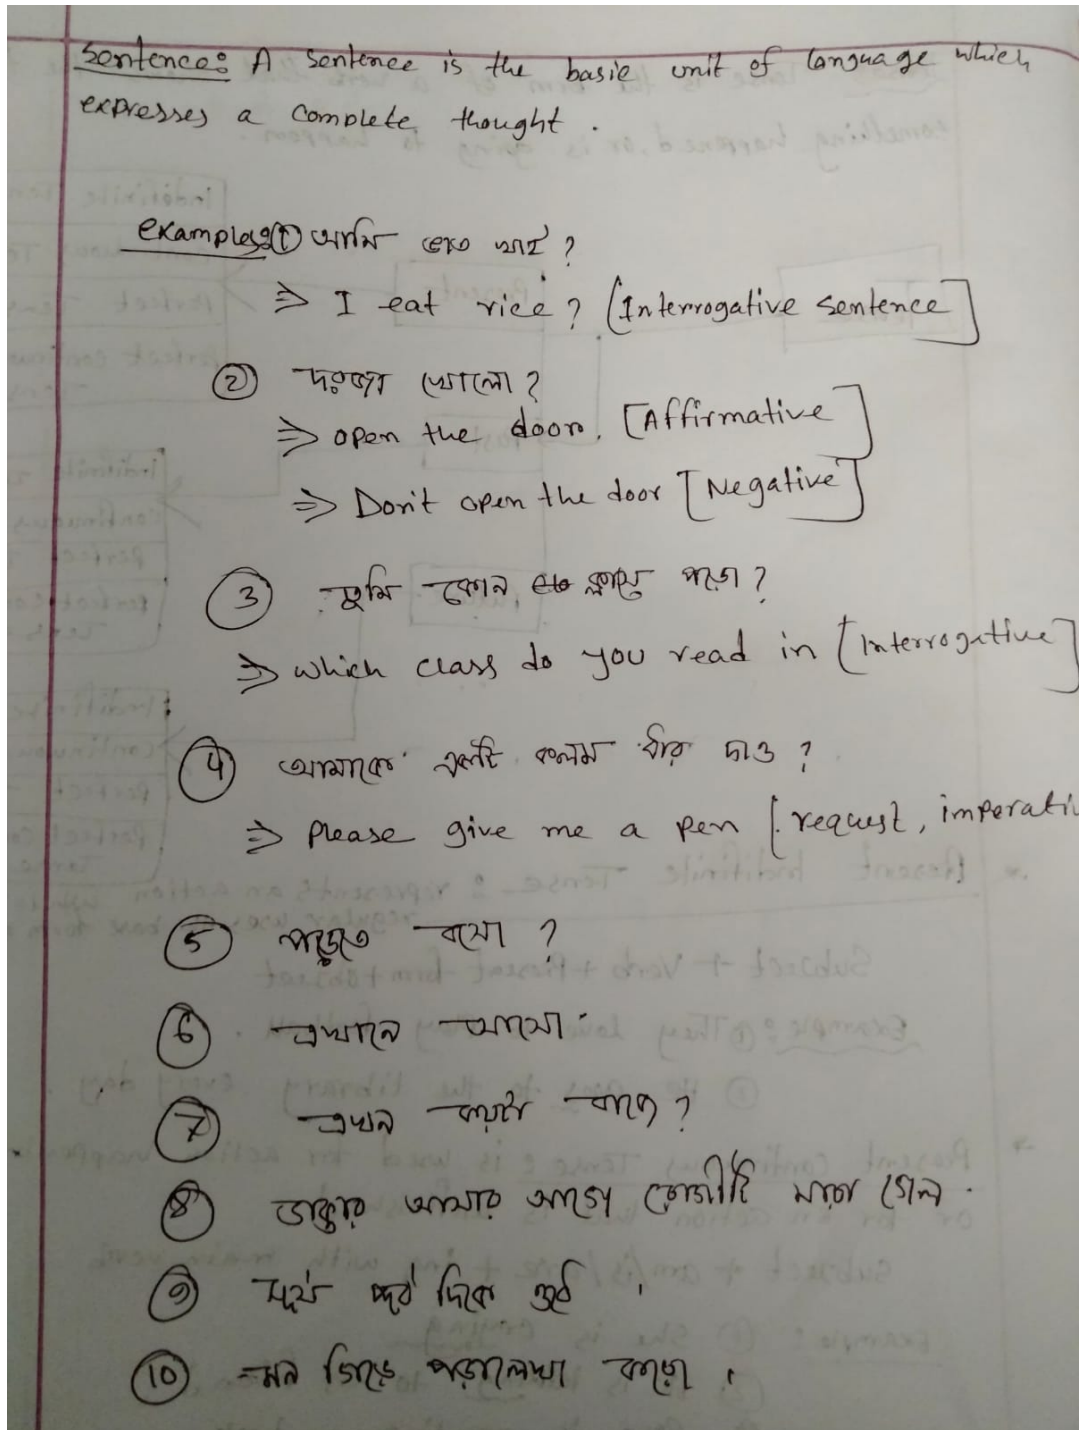 Sentence: A sentence is the basic unit of language which
expresses a complete thought.
Examples: ① আমি ভাত খাই?
⇒ I eat rice? [Interrogative sentence]
② দরজা খোলো?
⇒ open the door. [Affirmative]
⇒ Don't open the door [Negative]
③ তুমি কোন ক্লাসে পড়ো?
⇒ which class do you read in [Interrogative]
④ আমাকে একটি কলম ধার দাও?
⇒ please give me a pen [request, imperati
⑤ পড়তে বসো?
⑥ এখানে আসো.
⑦ এখন কয়টা বাজে?
⑧ ডাক্তার আসার আগে রোগীটি মারা গেল.
⑨ সূর্য পূর্ব দিকে ওঠে.
⑩ মন দিয়ে পড়ালেখা করো.